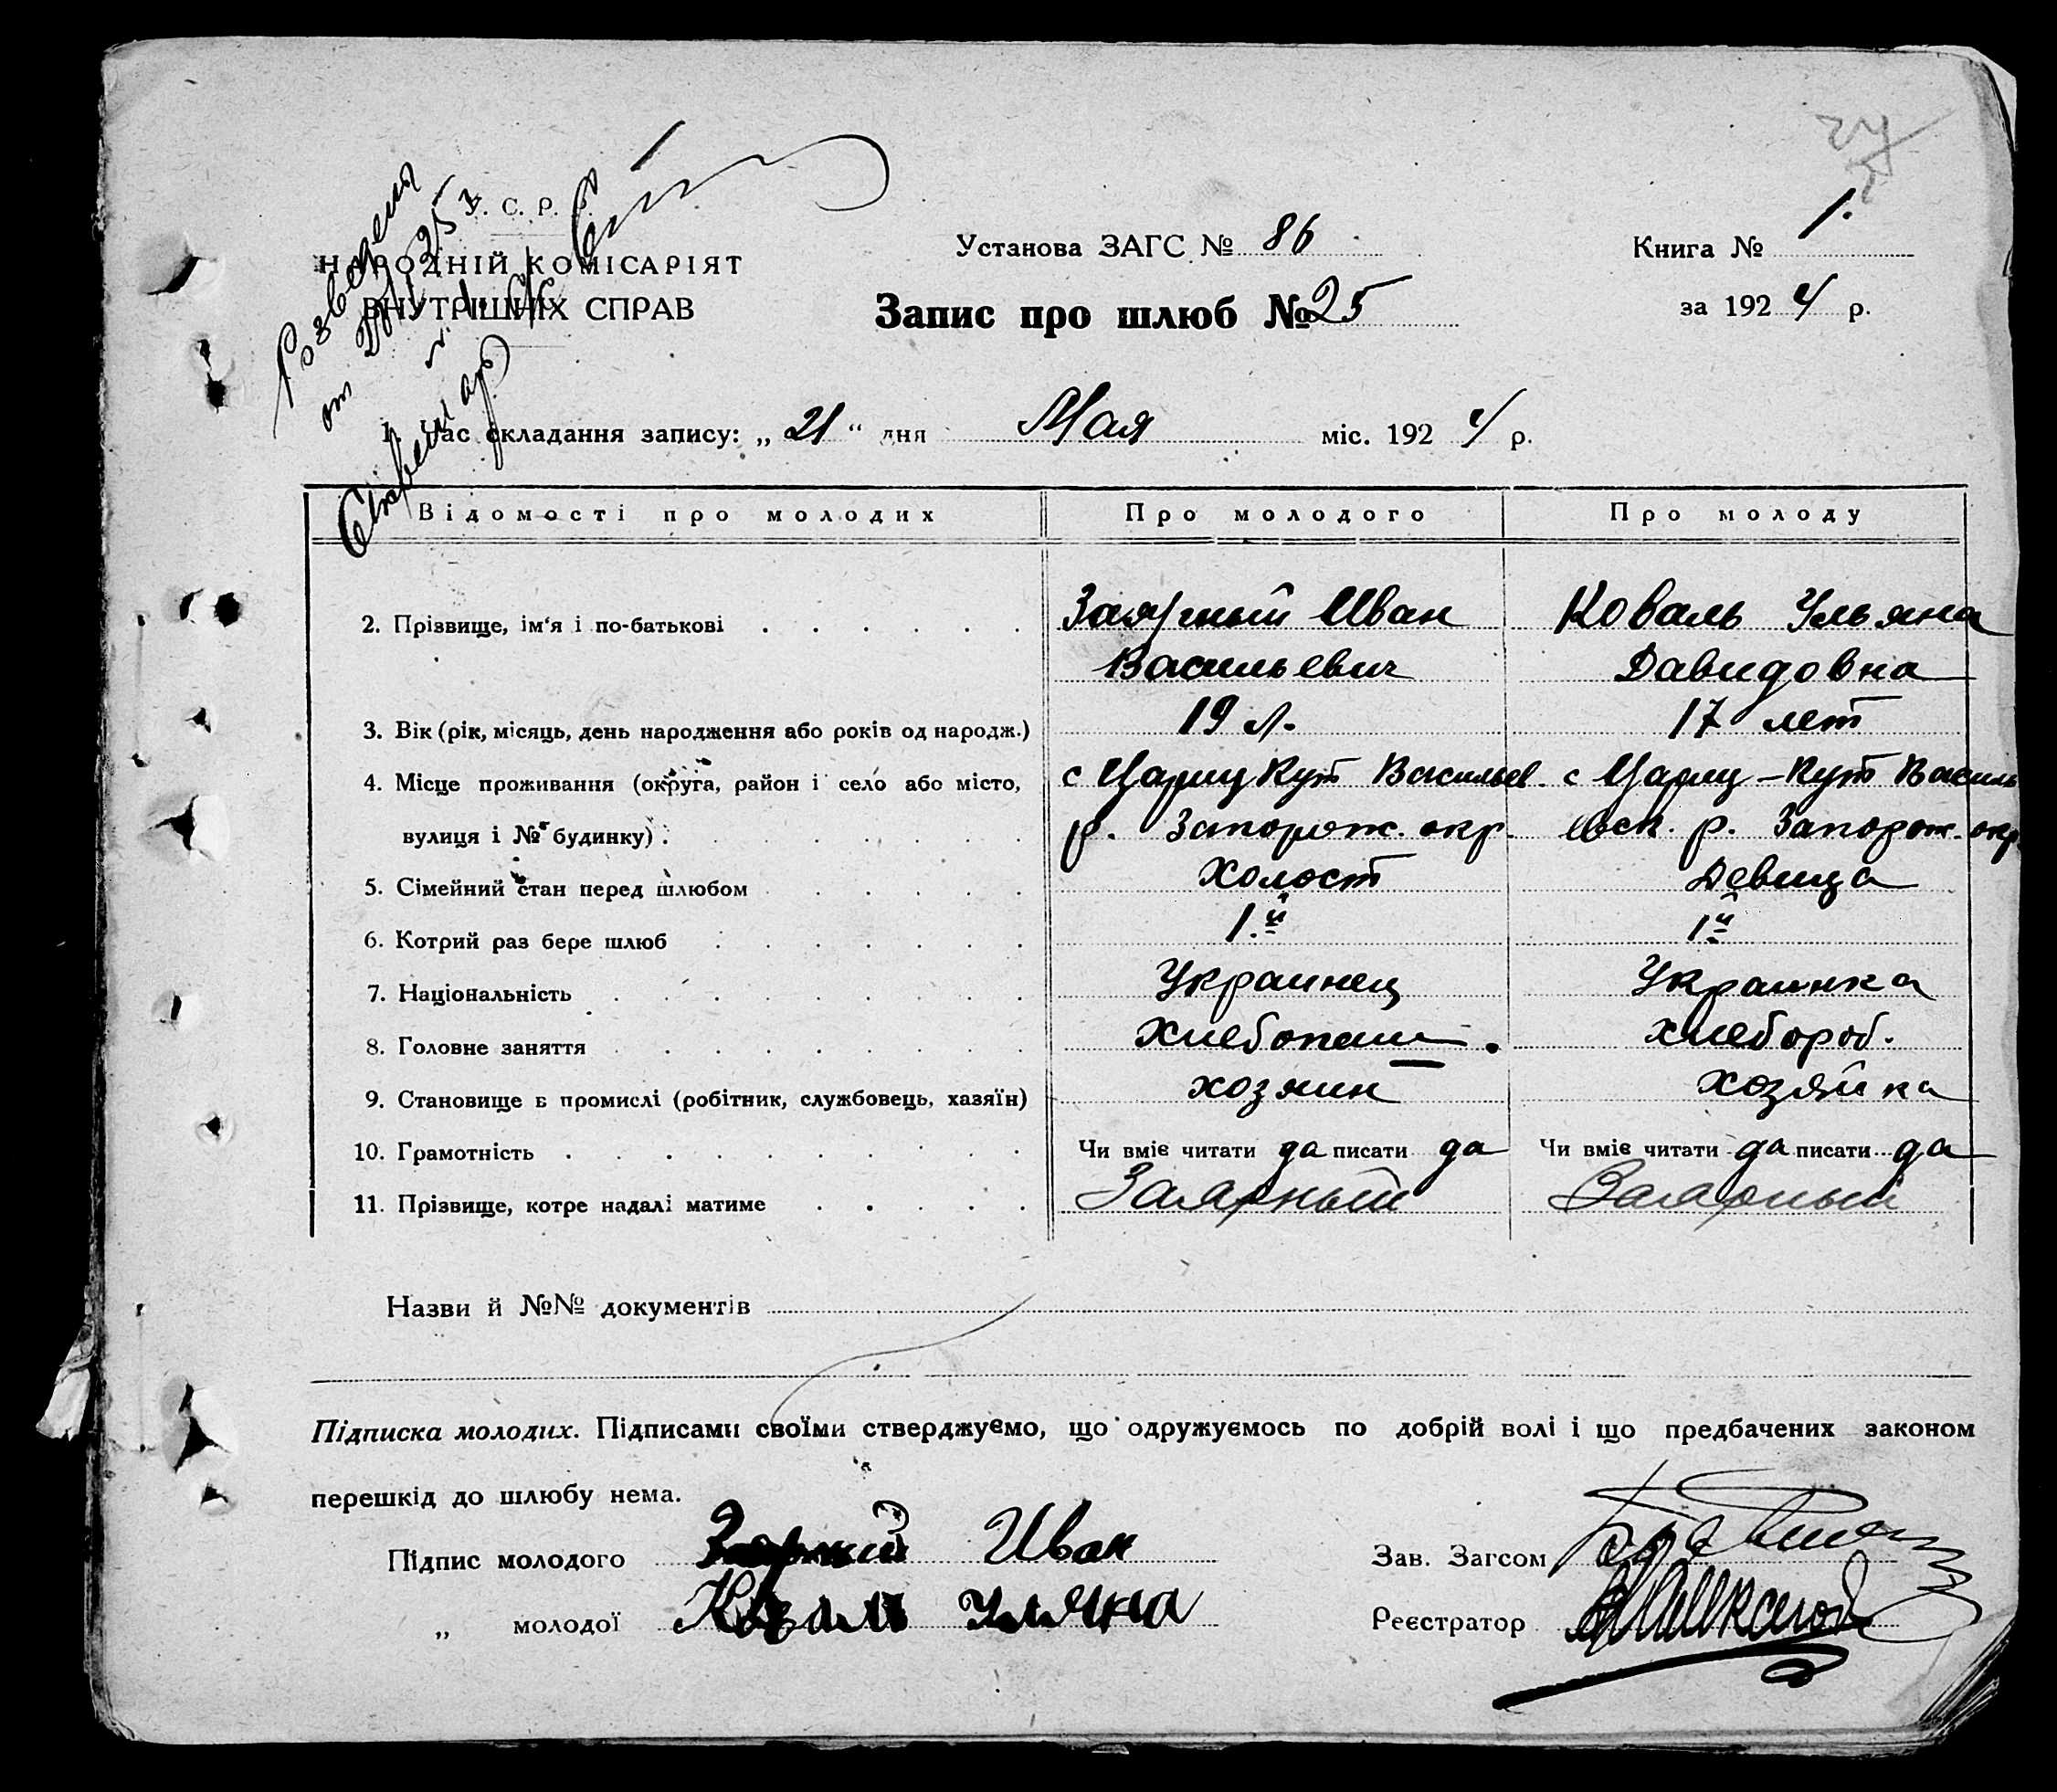 У. С. Р. Р.
НАРОДНІЙ КОМІСАРІЯТ
ВНУТРІШНІХ СПРАВ
Розведен
от
Секретарь
Установа ЗАГС № 86
Запис про шлюб № 25
Книга № 1.
за 1924 р.
1. Час складання запису: „21“ дня Мая міс. 1924 р.
Відомості про молодих Про молодого Про молоду
2. Прізвище, ім'я і по-батькові Заярный Иван Коваль Ульяна
Васильевич Давидовна
3. Вік (рік, місяць, день народження або років од народж.) 19 л. 17 лет
4. Місце проживання (округа, район і село або місто, с Цариц Кут Васильев. с Цариц-Кут Василь
вулиця і № будинку) р. Запорож. окр. евск. р. Запорож. окр.
5. Сімейний стан перед шлюбом Холост Девица
6. Котрий раз бере шлюб 1.й 1й
7. Національність Украинец Украинка
8. Головне заняття Хлебопаш. Хлебороб.
9. Становище в промислі (робітник, службовець, хазяїн) хозяин хозяйка
10. Грамотність Чи вміє читати да писати да Чи вміє читати да писати да
11. Прізвище, котре надалі матиме Заярный Заярный
Назви й №№ документів
Підписка молодих. Підписами своїми стверджуємо, що одружуємось по добрій волі і що предбачених законом
перешкід до шлюбу нема.
Підпис молодого Иван Зав. Загсом
„ молодої Коваль Уляна Реєстратор